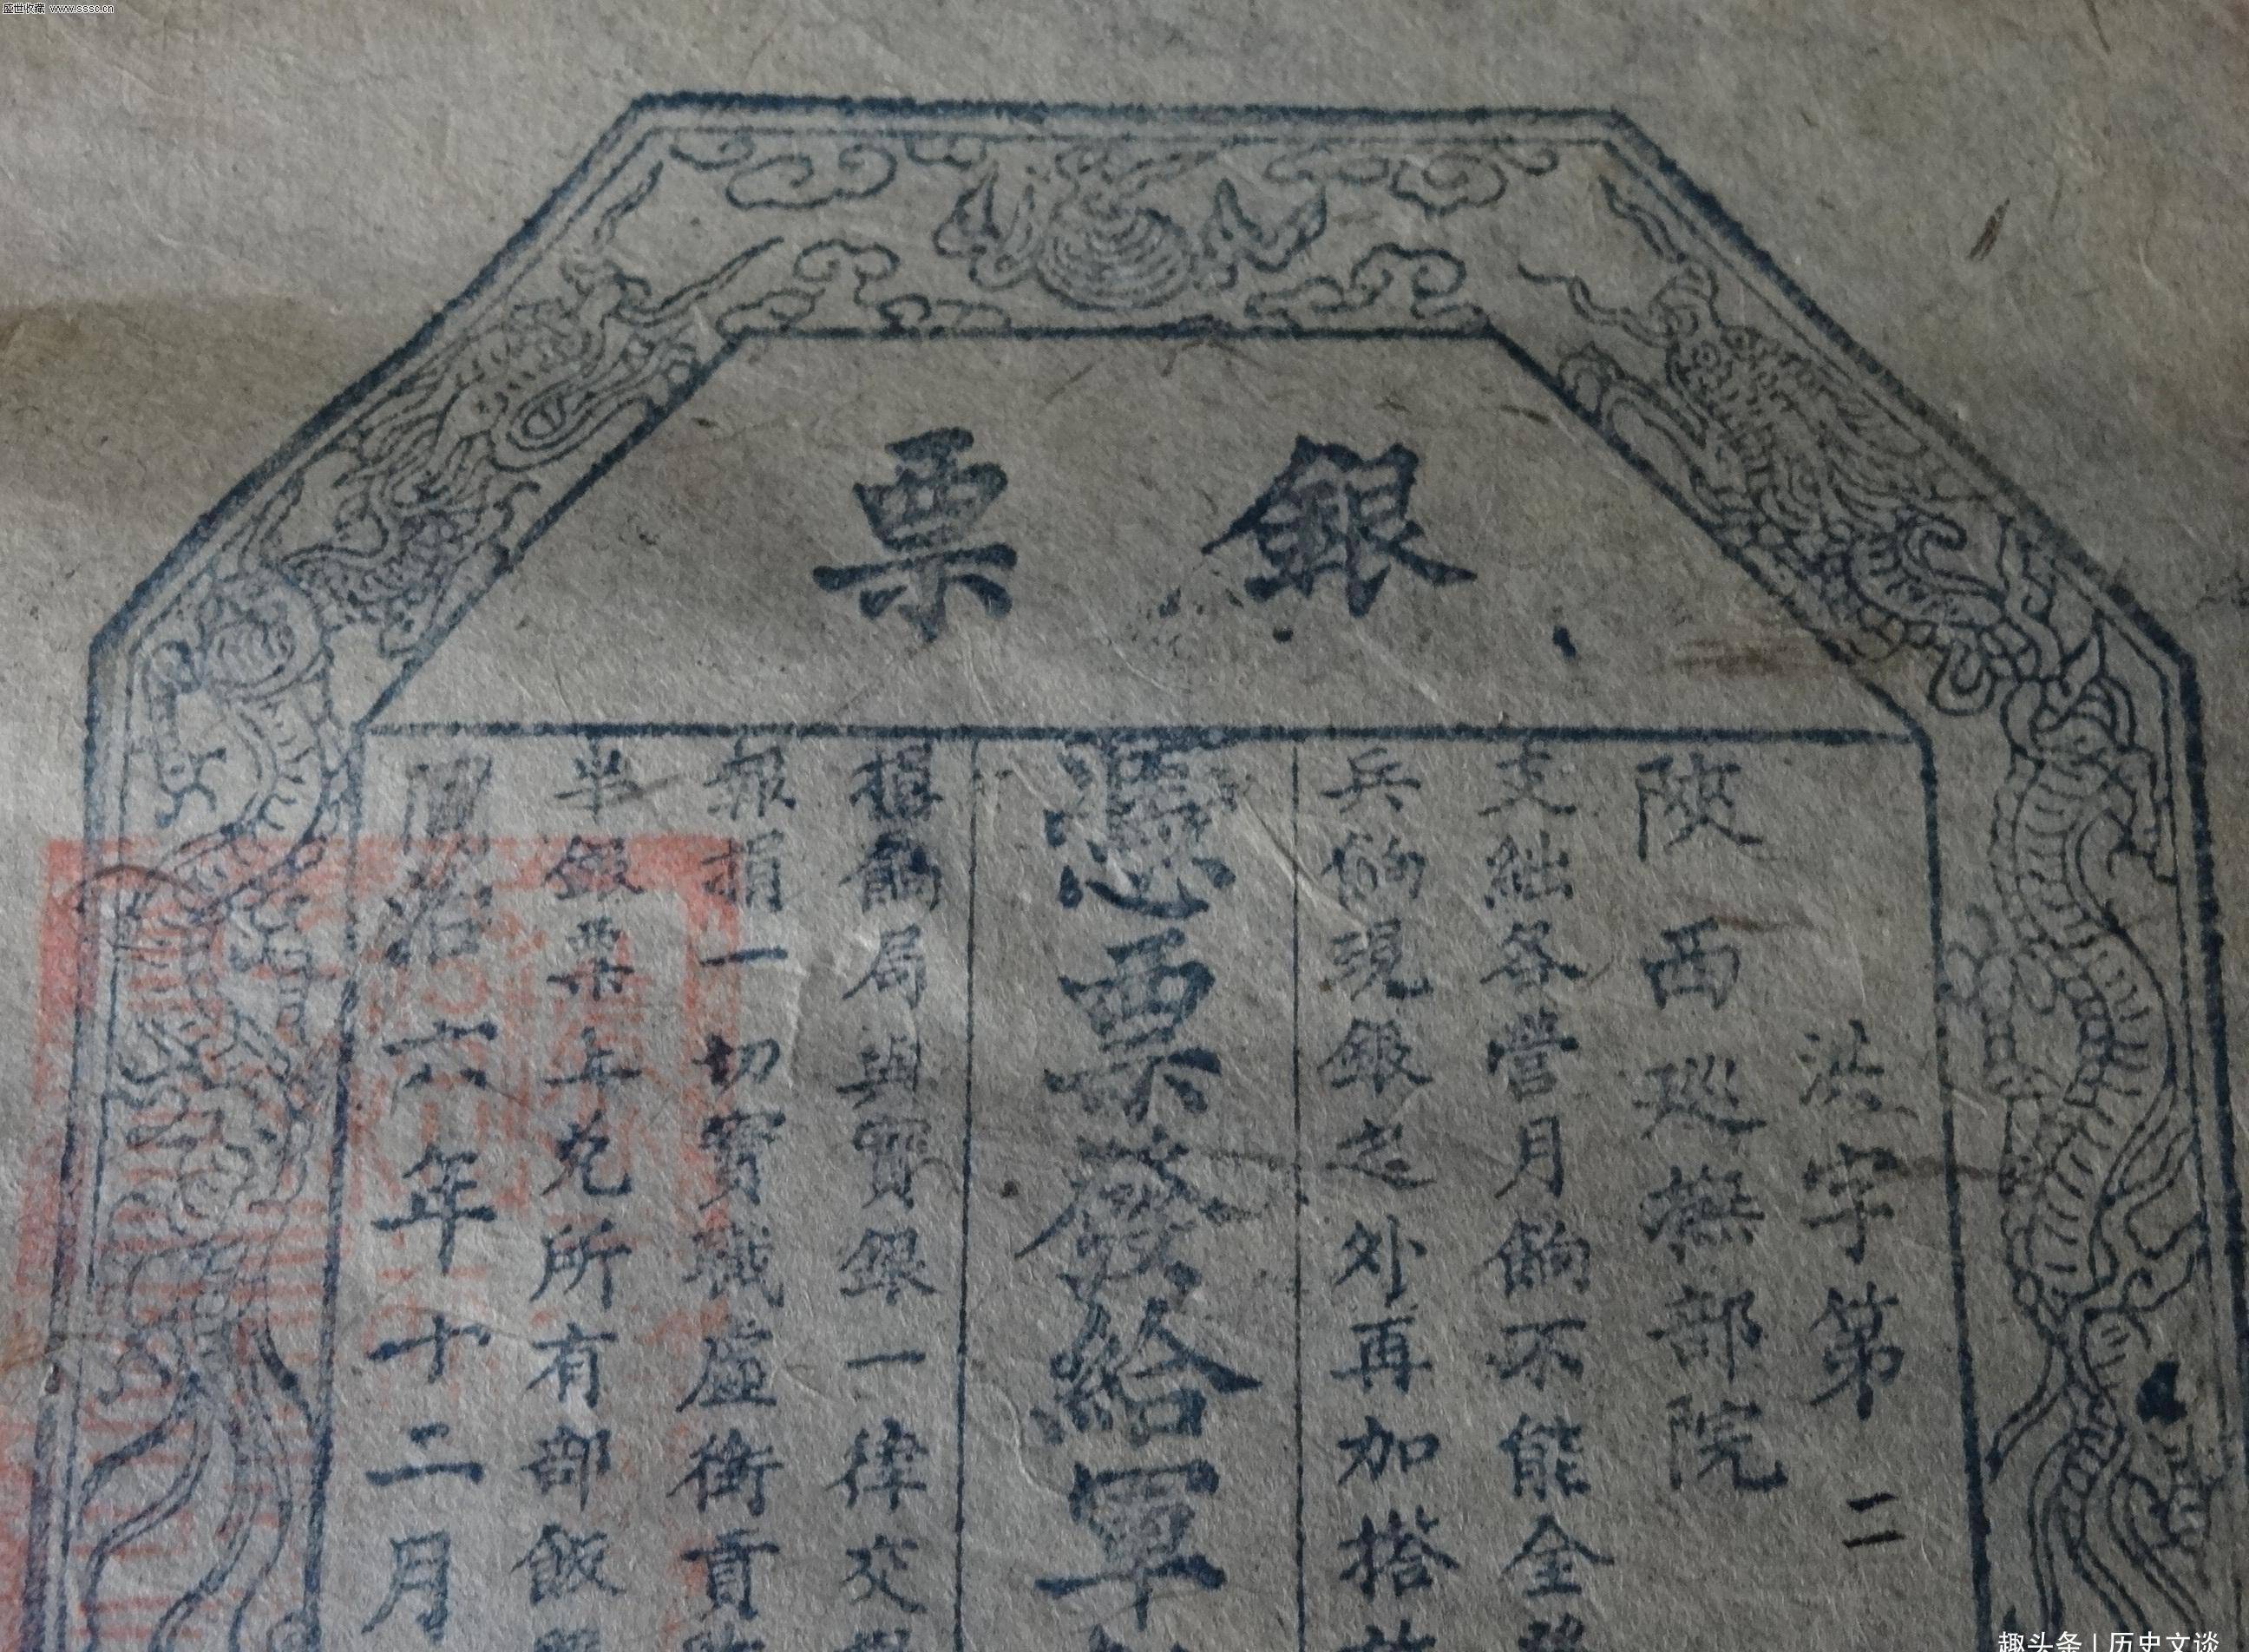 盛世收藏 www.sssc.cn
銀票
洪字第二
陝西巡撫部院
支絀各營月餉不能全
兵餉現銀之外再加搭
憑票發給軍
餉局與寶銀一律交
報捐一切實職虛銜貢
半銀票上兌所有部飯
同治六年十二月
趣头条 | 历史文谈